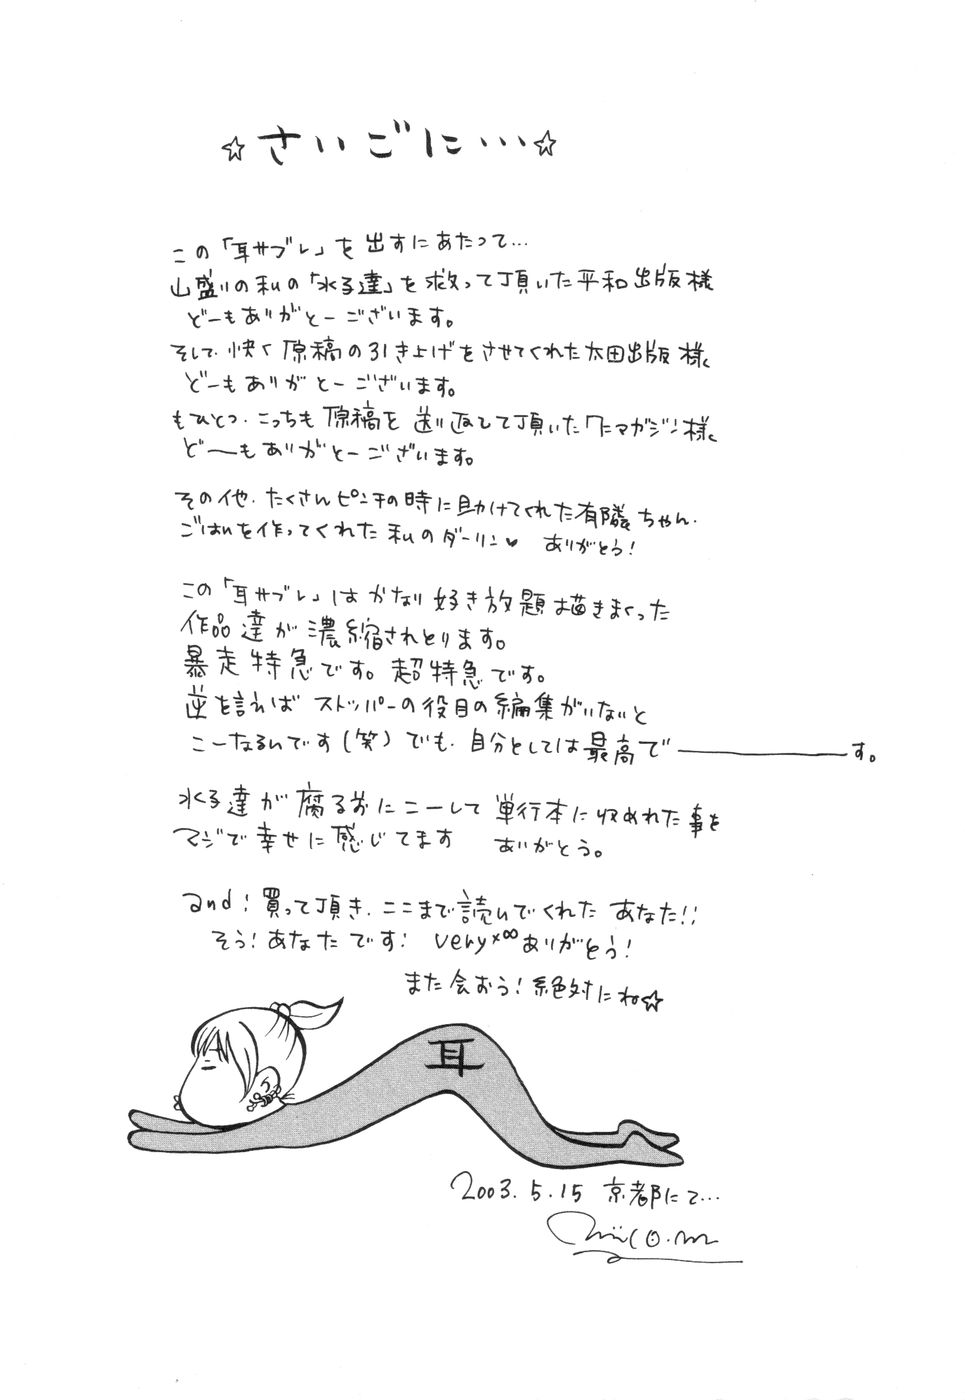 ☆さいごに…☆
この「耳サブレ」を出すにあたって…
山盛りの私の「水子達」を救って頂いた平和出版様
どーもありがとーございます。
そして、快く原稿の引き上げをさせてくれた太田出版様、
どーもありがとーございます。
もひとつ、こっちも原稿を送り返して頂いたワニマガジン様、
ど〜もありがとーございます。
その他、たくさんピンチの時に助けてくれた有隣ちゃん、
ごはんを作ってくれた私のダーリン♥ ありがとう!
この「耳サブレ」はかなり好き放題描きまくった
作品達が濃縮されとります。
暴走特急です。超特急です。
逆を言えばストッパーの役目の編集がいないと
こーなるんです(笑)でも、自分としては最高で————す。
水子達が腐る前にこーして単行本に収めれた事を
マジで幸せに感じてます ありがとう。
and!買って頂き、ここまで読んでくれたあなた!!
そう!あなたです! very×∞ありがとう!
また会おう!絶対にね☆
耳
2003.5.15 京都にて…